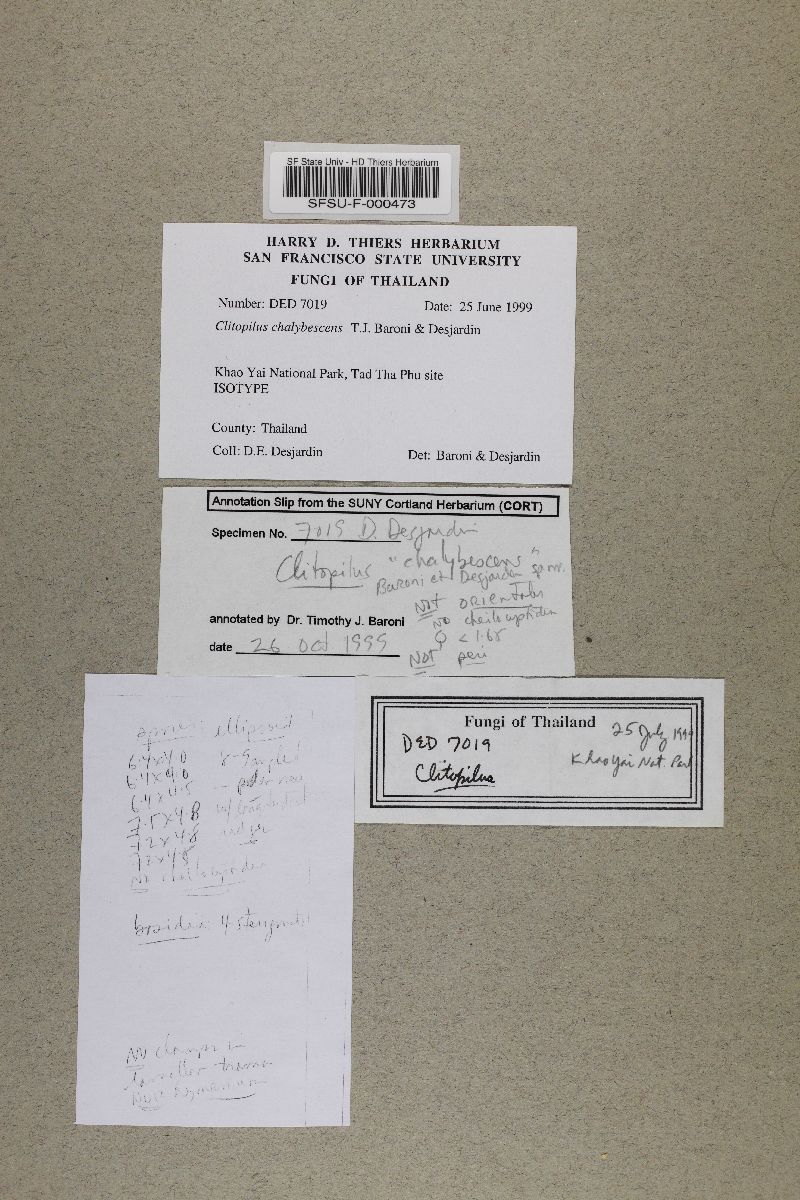 SF State Univ - HD Thiers Herbarium
SFSU-F-000473
HARRY D. THIERS HERBARIUM
SAN FRANCISCO STATE UNIVERSITY
FUNGI OF THAILAND
Number: DED 7019 Date: 25 June 1999
Clitopilus chalybescens T.J. Baroni & Desjardin
Khao Yai National Park, Tad Tha Phu site
ISOTYPE
County: Thailand
Coll: D.E. Desjardin Det: Baroni & Desjardin
Annotation Slip from the SUNY Cortland Herbarium (CORT)
Specimen No. 7019 D. Desjardin
Clitopilus "chalybescens"
Baroni et Desjardin sp. nov.
Not orientalis
annotated by Dr. Timothy J. Baroni No cheilocystidia
Q < 1.65
date 26 Oct 1999 Not peri
Fungi of Thailand
DED 7019 25 July 1999
Clitopilus Khao Yai Nat. Park
spores: ellipsoid
6.4x4.0
6.4x4.0
6.4x4.5
7.2x4.8
7.2x4.8
No cheilocystidia
basidia: 4 sterigmate
No clamps in
lamellar trama